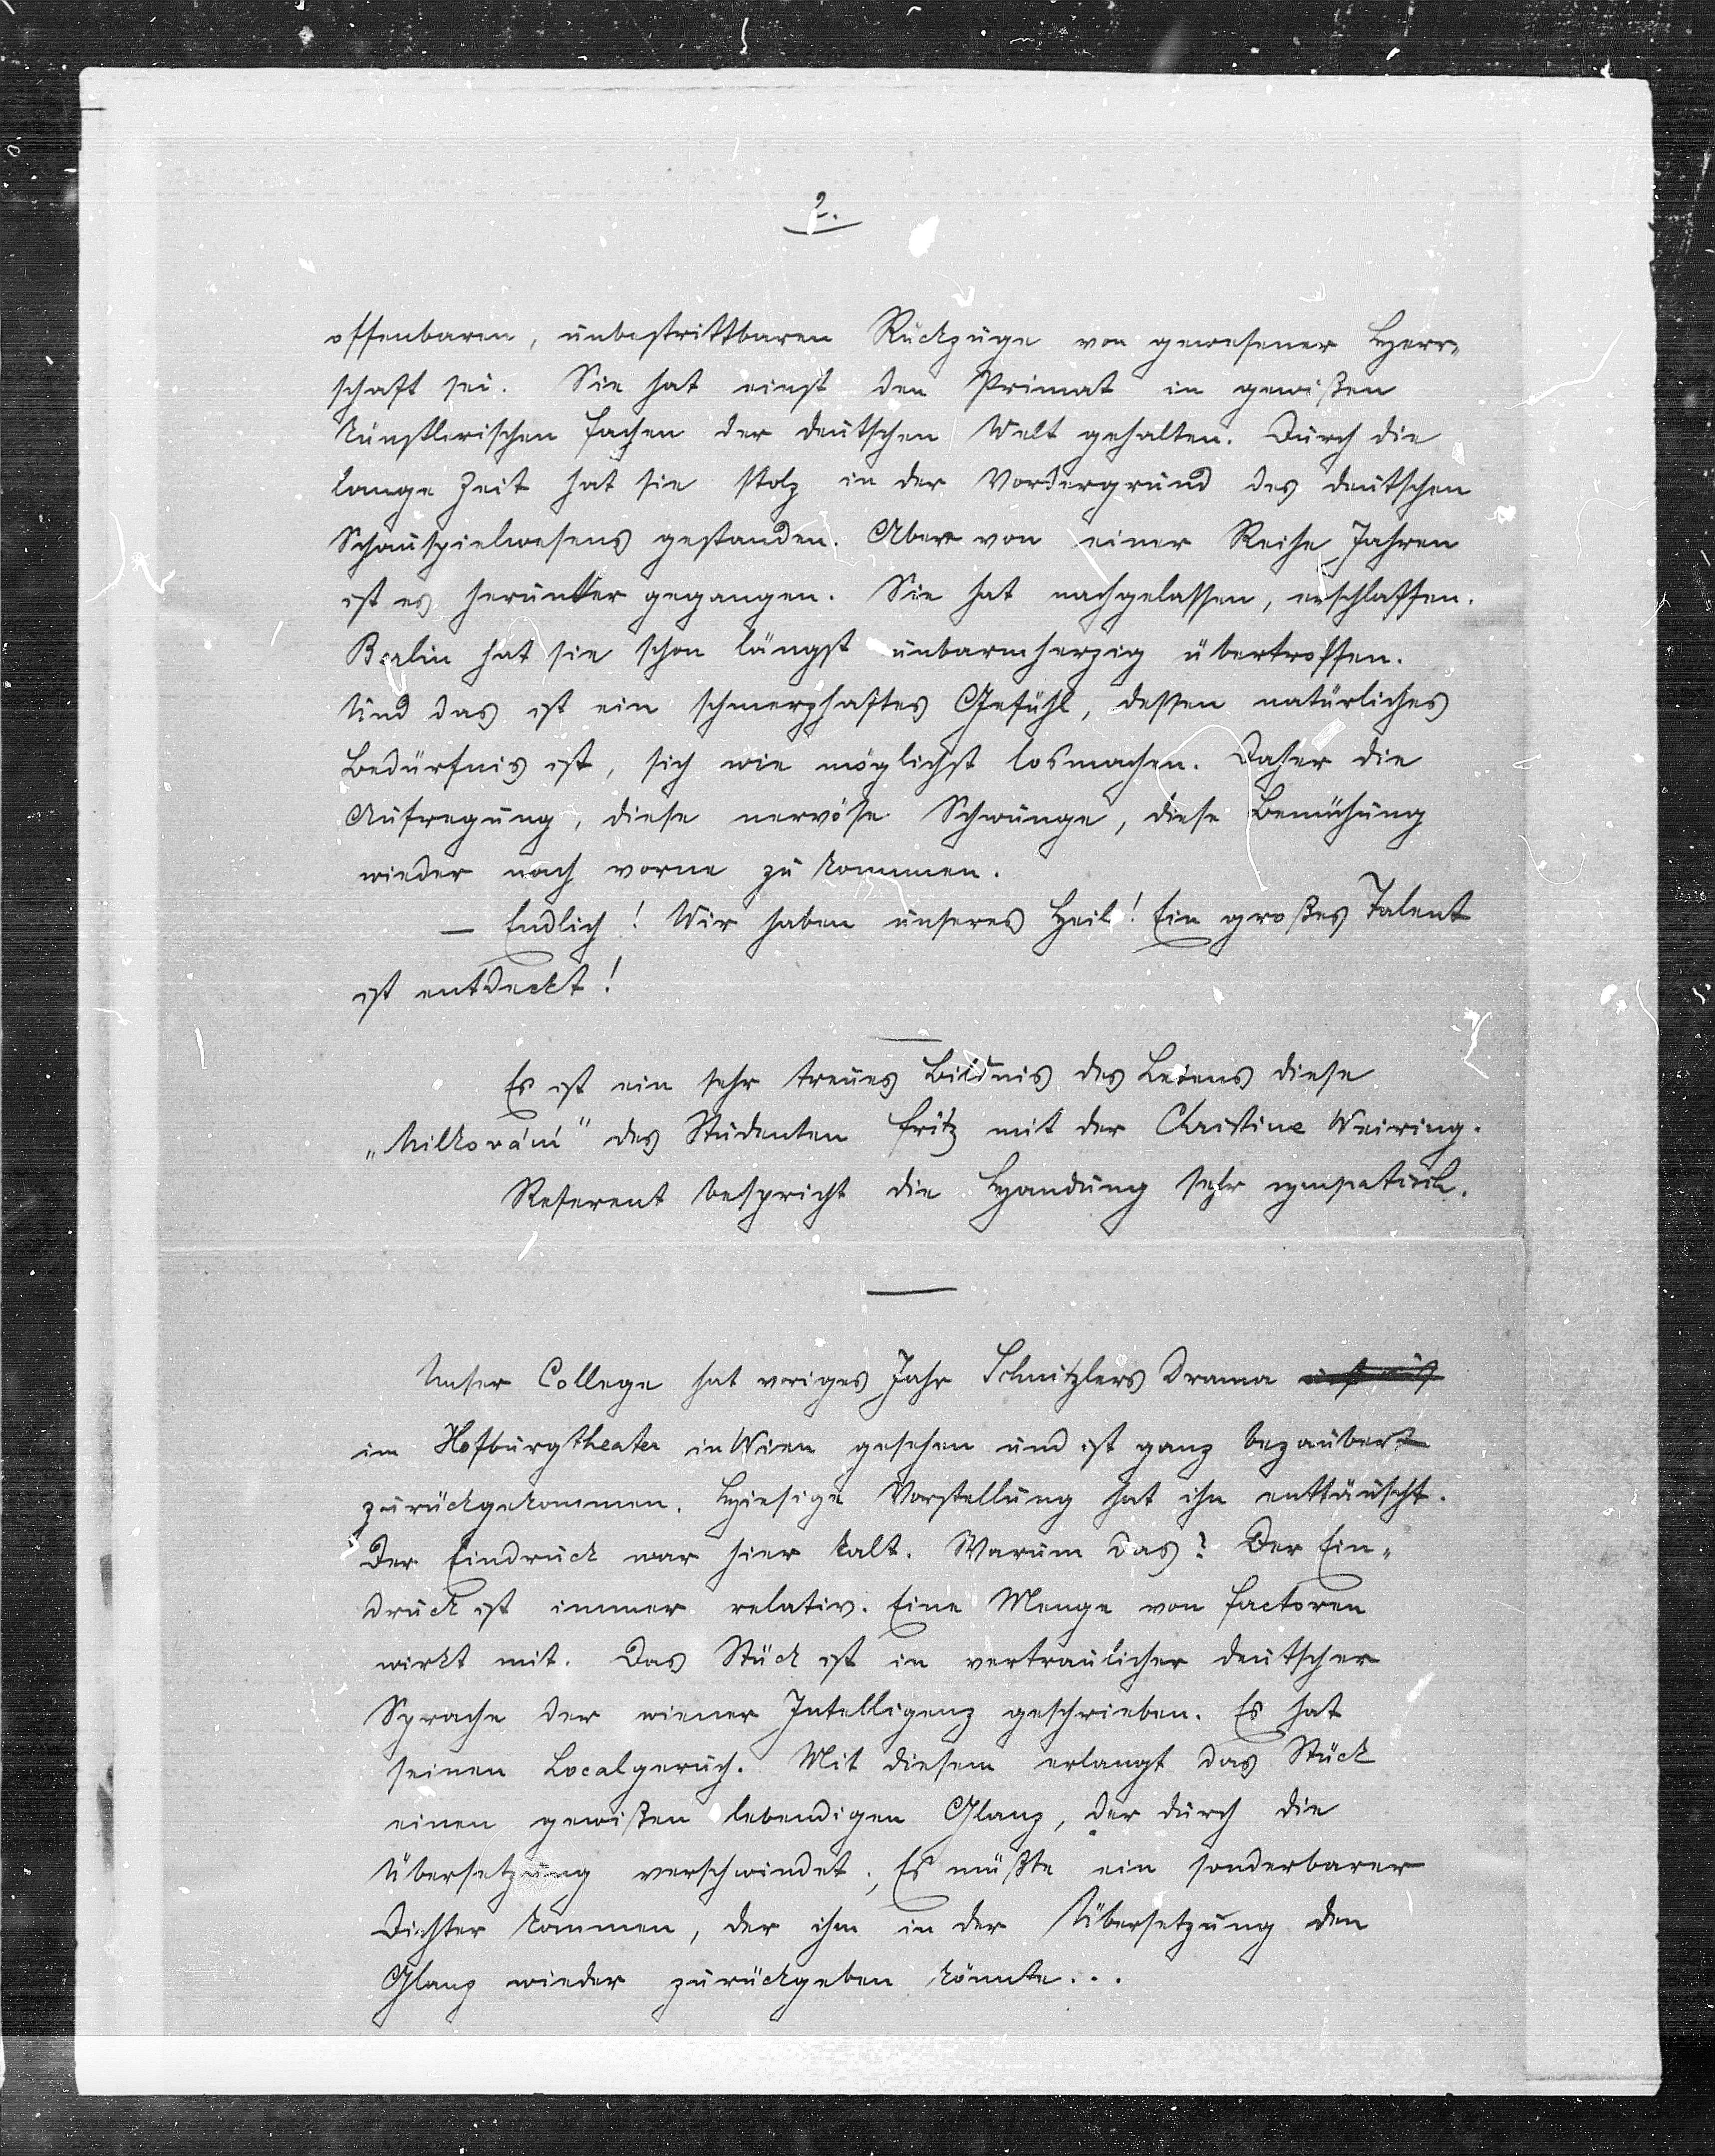 2.
offenbaren, unbestrittbaren Rückzüge von gewesener Herr-
schaft sei. Sie hat einst den Primat in gewißen
künstlerischen Fachen der deutschen Welt gehalten. Durch die
lange Zeit hat sie stolz in der Vordergrund des deutschen
Schauspielwesens gestanden. Aber von einer Reihe Jahren
ist es herunter gegangen. Sie hat nachgelassen, erschlaffen.
Berlin hat sie schon längst unbarmherzig übertroffen.
Und das ist ein schmerzhaftes Gefühl, dessen natürliches
Bedürfnis ist, sich wie möglichst losmachen. Daher die
Aufregung, diese nervöse Schwunge, diese Bemühung
wieder nach vorne zu kommen.
— Endlich! Wir haben unseres Heil! Ein großes Talent
ist entdeckt!
Es ist ein sehr treues Bildnis des Lebens diese
„Milkování" des Studenten Fritz mit der Christine Weiring.
Referent bespricht die Handung sehr sympatisch.
Unser College hat voriges Jahr Schnitzlers Drama
im Hofburgtheater in Wien gesehen und ist ganz bezaubert
zurückgekommen. Hiesige Vorstellung hat ihn enttäuscht.
Der Eindruck war hier kalt. Warum das? Der Ein-
druck ist immer relativ. Eine Menge von Factoren
wirkt mit. Das Stück ist in vertraulicher deutscher
Sprache der wiener Intelligenz geschrieben. Es hat
seinen Localgeruch. Mit diesem erlangt das Stück
einen gewißen lebendigen Glanz, der durch die
Übersetzung verschwindet; Es müßte ein sonderbarer
Dichter kommen, der ihm in der Übersetzung den
Glanz wieder zurückgeben könnte...